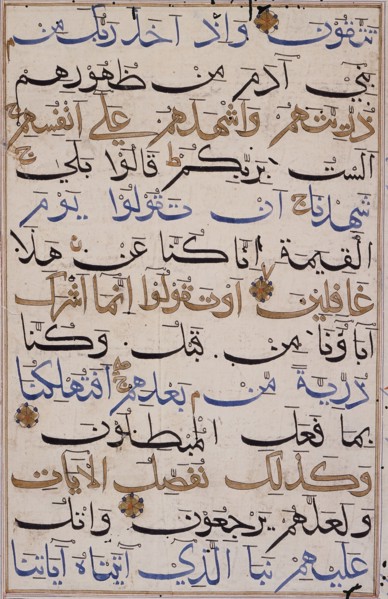 تتقون واذ اخذ ربك من
بني آدم من ظهورهم
ذريتهم واشهدهم على انفسهم
الست بربكم قالوا بلى
شهدنا ان تقولوا يوم
القيمة انا كنا عن هذا
غافلين او تقولوا انما اشرك
آباؤنا من قبل وكنا
ذرية من بعدهم افتهلكنا
بما فعل المبطلون
وكذلك نفصل الآيات
ولعلهم يرجعون واتل
عليهم نبأ الذي آتيناه آياتنا